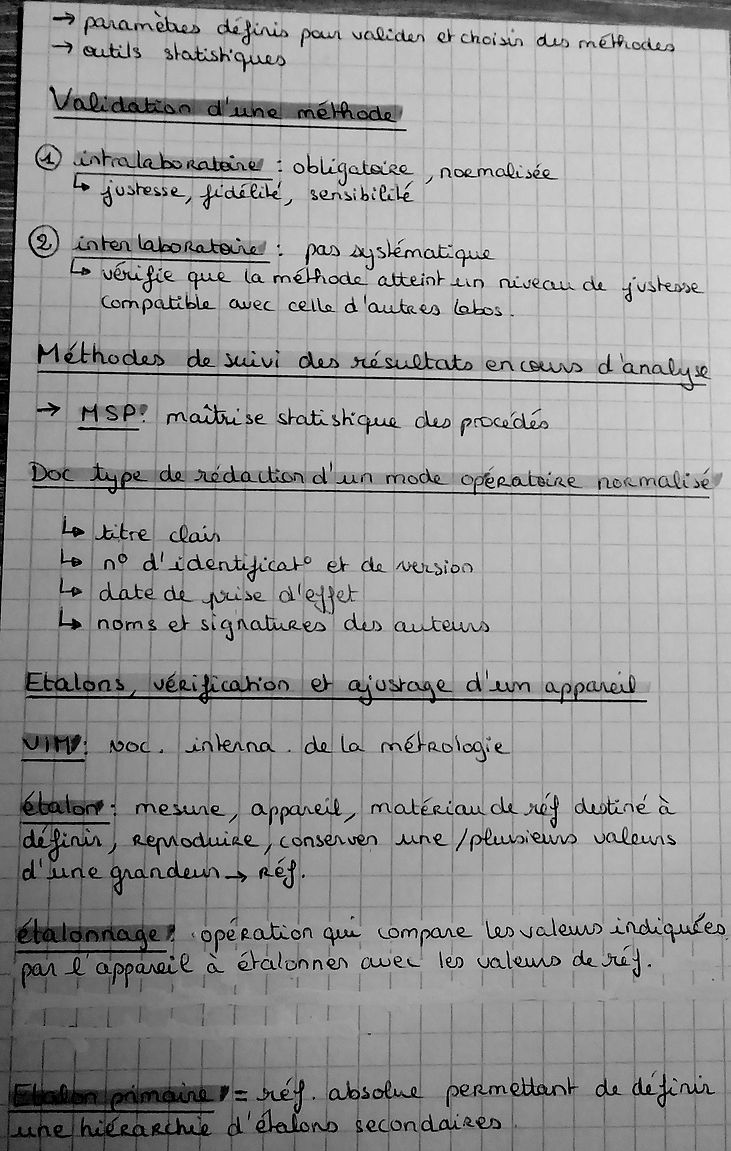 → paramètres définis pour valider et choisir des méthodes
→ outils statistiques
Validation d'une méthode
① intralaboratoire : obligatoire, normalisée
↳ justesse, fidélité, sensibilité
② interlaboratoire : pas systématique
↳ vérifie que la méthode atteint un niveau de justesse
compatible avec celle d'autres labos.
Méthodes de suivi des résultats en cours d'analyse
→ MSP : maîtrise statistique des procédés
Doc type de rédaction d'un mode opératoire normalisé
↳ titre clair
↳ n° d'identificat° et de version
↳ date de prise d'effet
↳ noms et signatures des auteurs
Etalons, vérification et ajustage d'un appareil
VIM : voc. interna. de la métrologie
étalon : mesure, appareil, matériau de réf destiné à
définir, reproduire, conserver une/plusieurs valeurs
d'une grandeur → réf.
étalonnage : opération qui compare les valeurs indiquées
par l'appareil à étalonner avec les valeurs de réf.
Etalon primaire = réf. absolue permettant de définir
une hiérarchie d'étalons secondaires.